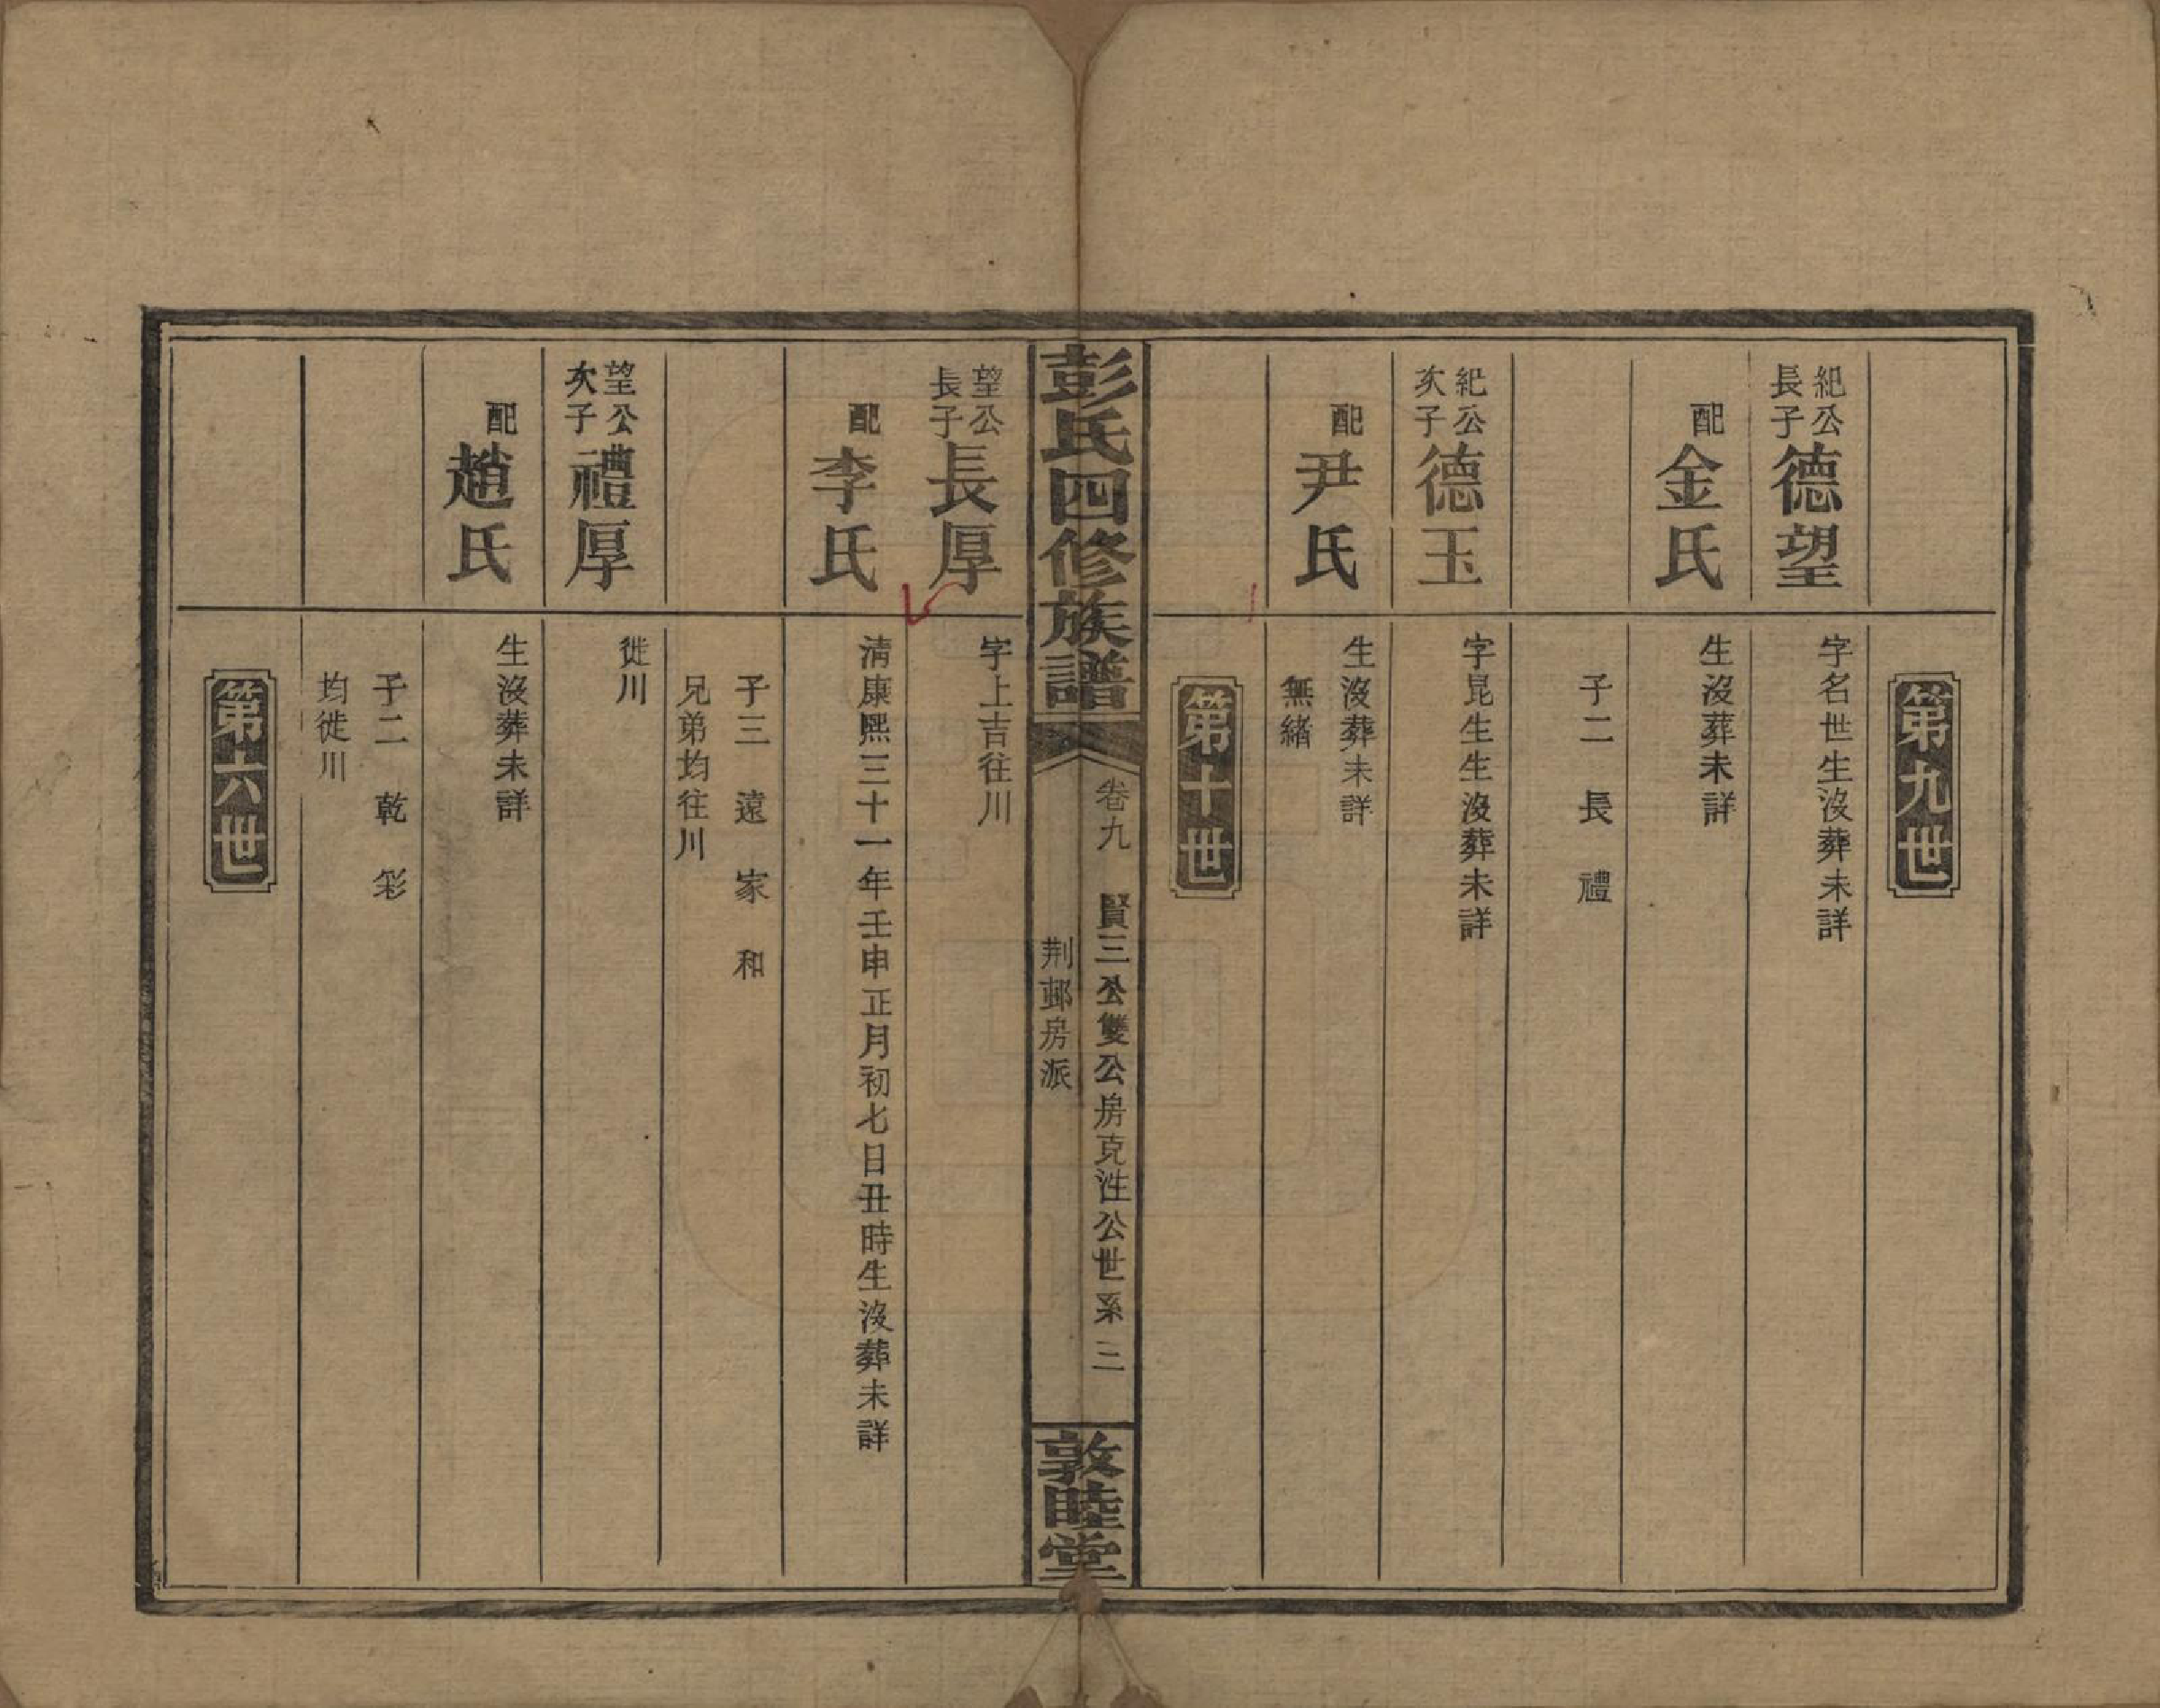 第九世
紀公長子德望
字名世生沒葬未詳
配金氏
生沒葬未詳
子二 長 禮
紀公次子德玉
字昆生生沒葬未詳
配尹氏
生沒葬未詳
無緒
第十世
彭氏四修族譜
卷九 賢三公雙公房克性公世系 二
荆邨房派
敦睦堂
望公長子長厚
字上吉往川
配李氏
清康熙三十一年壬申正月初七日丑時生沒葬未詳
子三 遠 家 和
兄弟均往川
望公次子禮厚
徙川
配趙氏
生沒葬未詳
子二 乾 彩
均徙川
第十六世